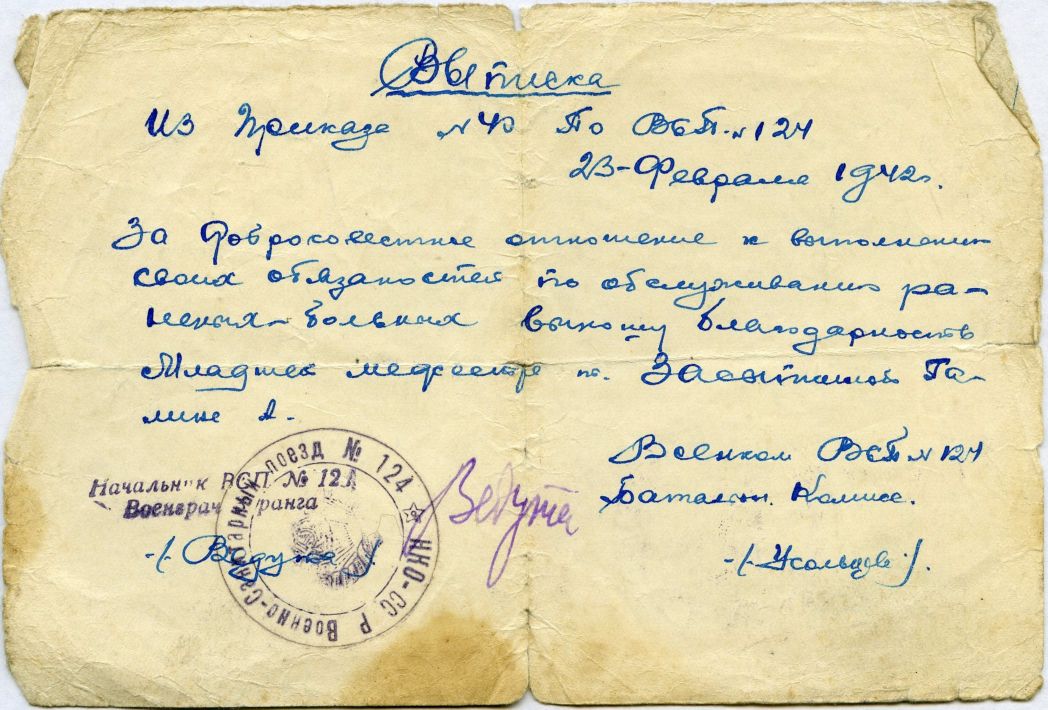 Выписка
Из Приказа №40 По ВСП-№124
23-Февраля 1942г.
За Добросовестное отношение к выполнению
своих обязаностей по обслуживанию ра-
неных-больных выношу благодарность
Младшей медсестре т. Засыпкиной Га-
лине А.
Начальник ВСП № 124
Военврач ранга
-/. Ведута
Военно-Санитарный поезд № 124 ☆ НКО-СССР
Ведута
Военком ВСП №124
Батальон. Комисс.
-/. Усольцев /.